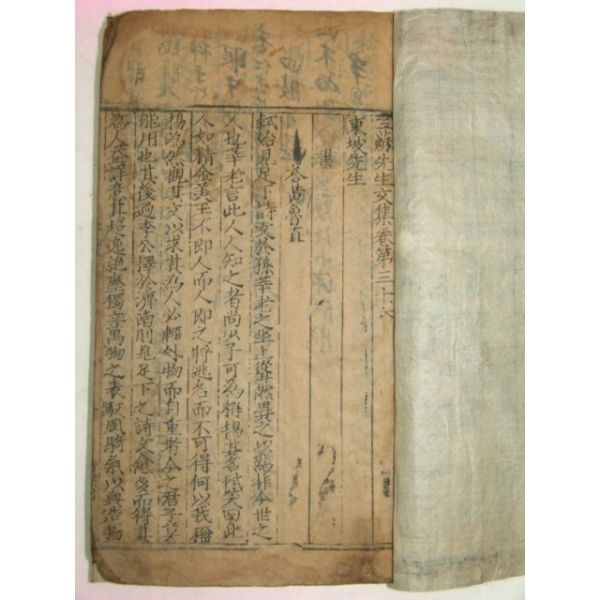 三蘇先生文集卷第三十六
東坡先生
書
答黃魯直
軾始見足下詩文於孫莘老之坐上聳然異之以爲非今世之
人也莘老言此人人知之者尚少子可爲稱揚其名軾笑曰此
人如精金美玉不即人而人即之將逃名而不可得何以我稱
揚爲然觀其文以求其爲人必輕外物而自重者今之君子莫
能用也其後過李公擇於濟南則見足下之詩文愈多而得其
為人益詳意其超逸絕塵獨立萬物之表馭風騎氣以與造物